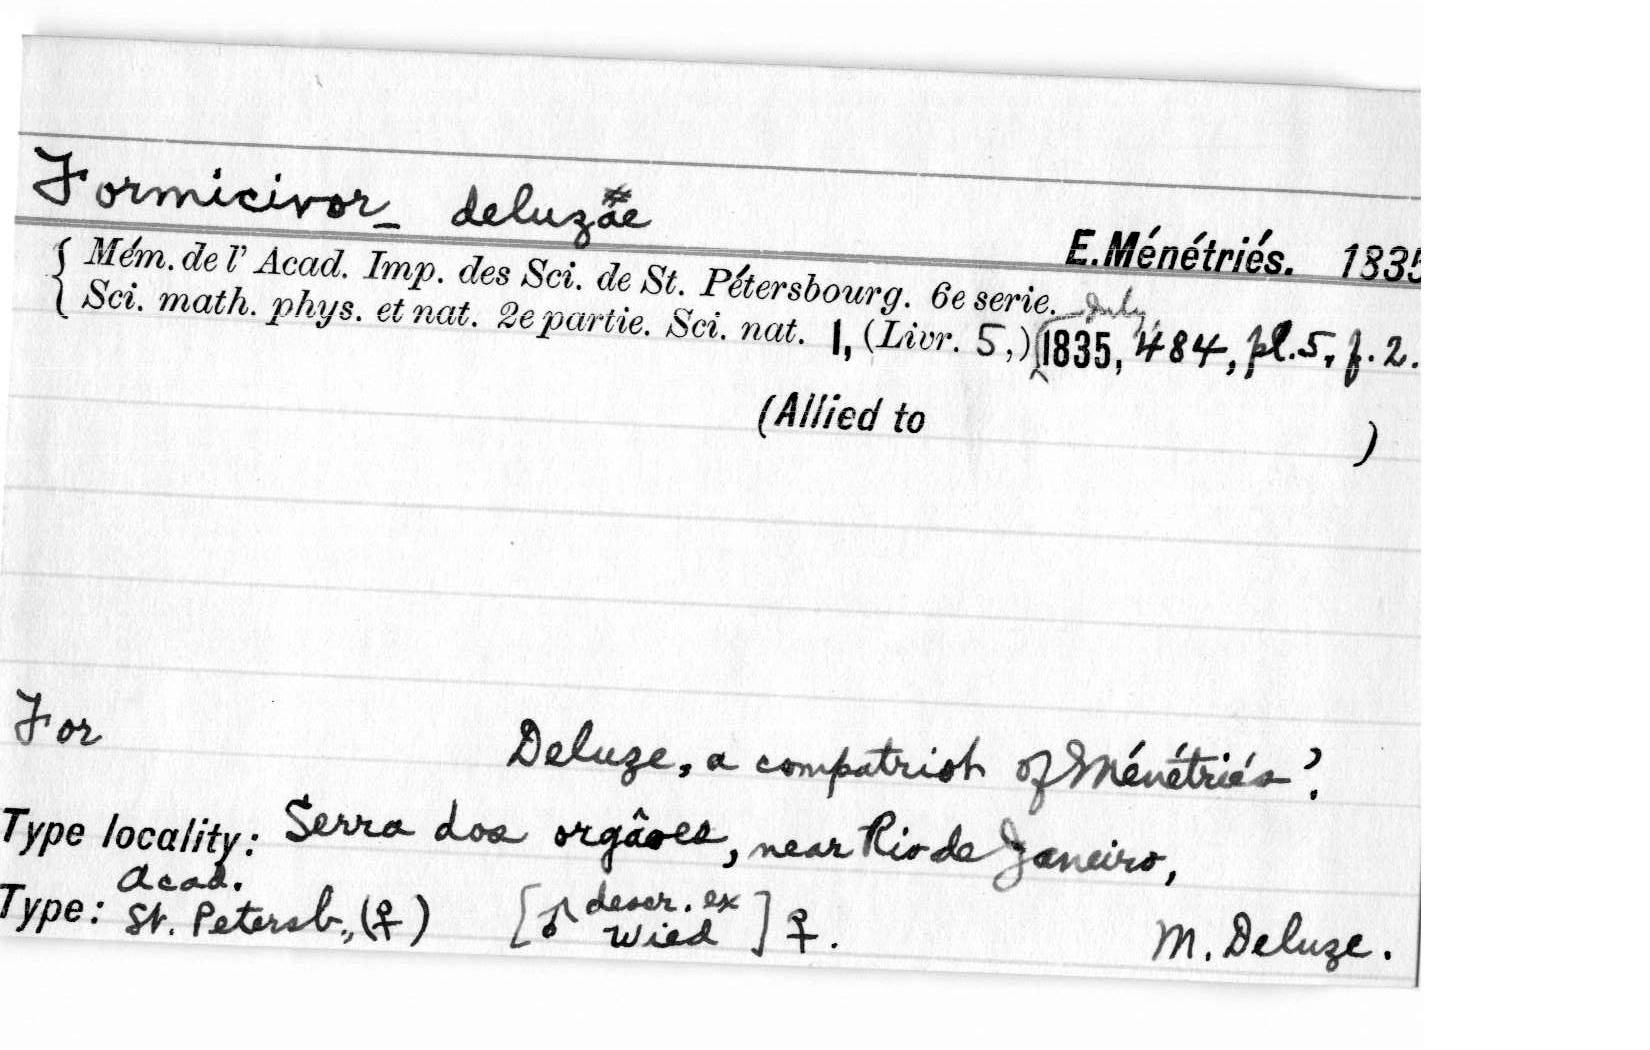 Formicivor_ deluzae #
E. Ménétriés. 1835
{ Mém. de l' Acad. Imp. des Sci. de St. Pétersbourg. 6e serie.
{ Sci. math. phys. et nat. 2e partie. Sci. nat. 1, (Livr. 5,) July, 1835, 484, pl. 5, f. 2.
(Allied to )
For Deluze, a compatriot of Ménétriés?.
Type locality: Serra dos orgâoes, near Rio de Janeiro,
Type: Acad. St. Petersb., (♀) [♂ descr. ex Wied] ♀. M. Deluze.